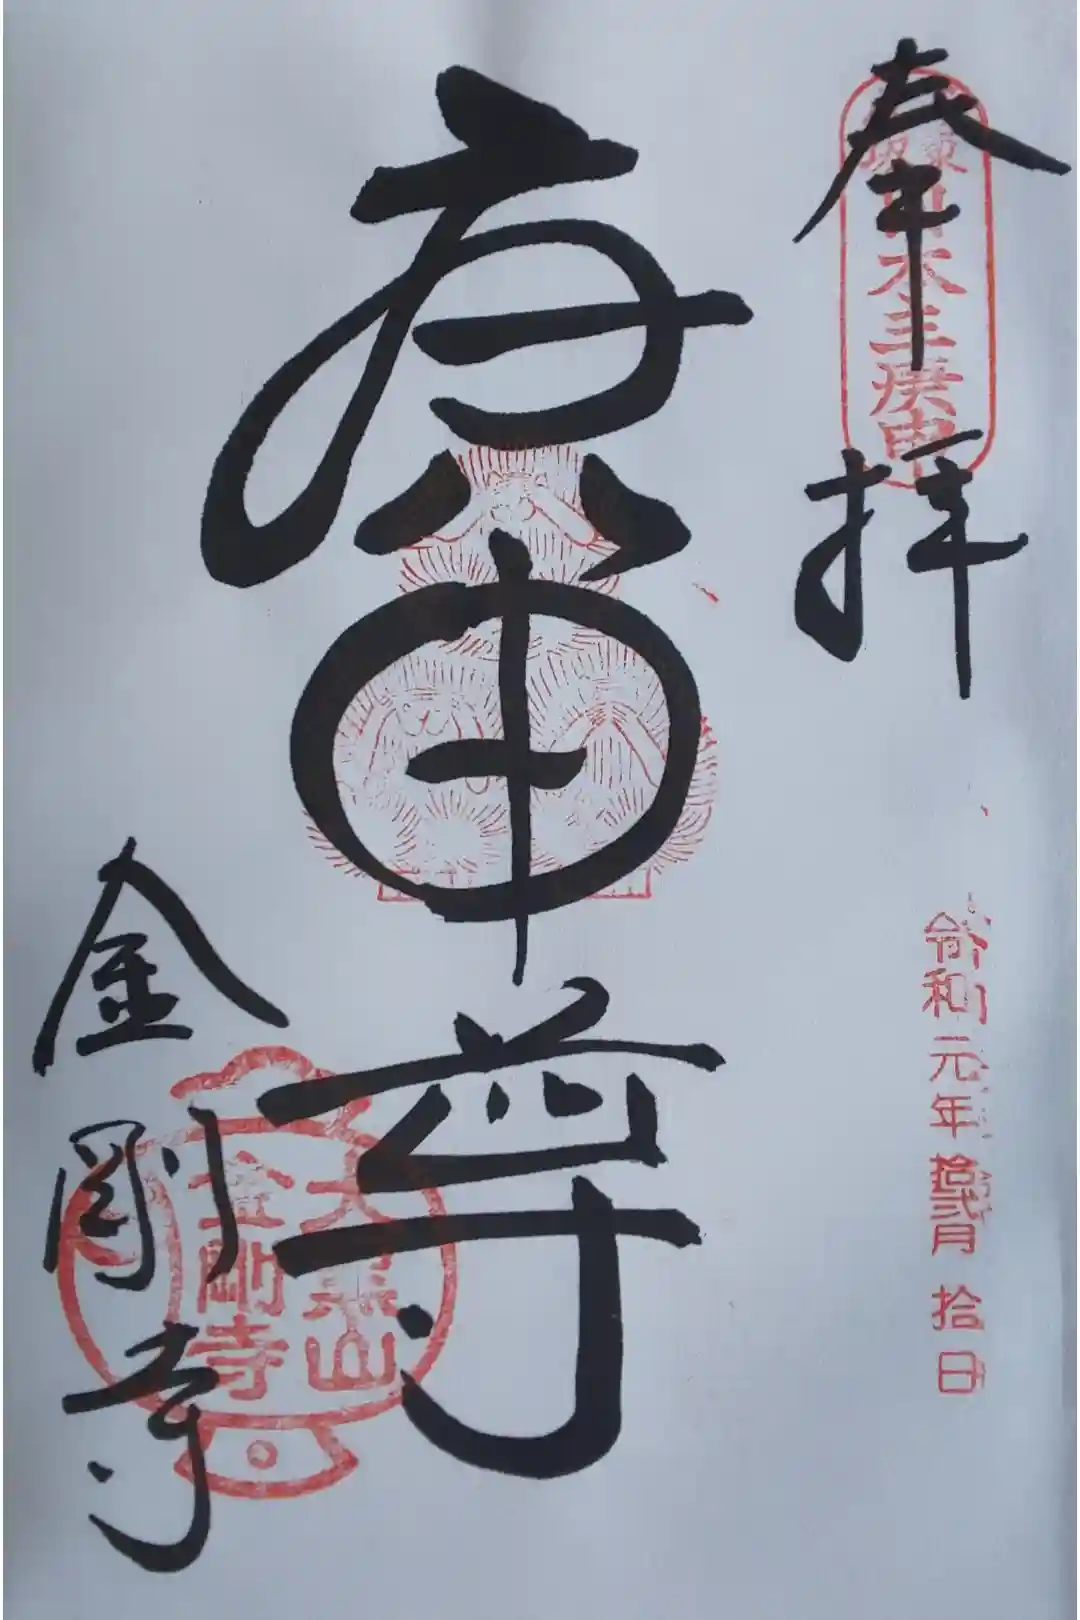 奉拝
山木主庚申
令和元年拾弐月拾日
庚申尊
大黒山
金剛寺
金剛寺